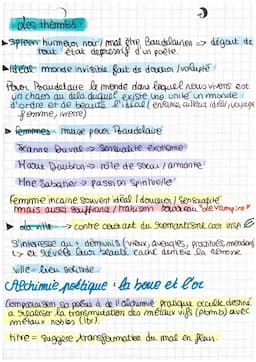 Les thèmes
Spleen humeur noir / mal être Baudelairien => dégoût de tout état dépressif d'un poète.
Idéal monde invisible fait de douceur / volupté
Pour Baudelaire le monde dans lequel nous vivons est
un chaos au delà duquel existe une unité un monde
d'ordre et de beauté l'idéal (enfance, ailleurs idéal, voyage
femme, ivresse)
Femmes muse pour Baudelaire
Jeanne Duval → sensualité exotique
Marie Daubrun → rôle de soeur / amante
Mme Sabatier → passion spirituelle
Femme incarne souvent idéal / douceur / sensualité
mais aussi souffrance / trahison "Le vampire"
La ville → contre courant du romantisme
S'intéresse au + démunis (vieux, aveugles, prostitués, mendiants)
ville = lieu solitude
Alchimie poétique : la boue et l'or
Comparaison sa poésie à de l'alchimie pratique occulte destiné
a réaliser la transmutation des métaux vifs (plomb) avec
métaux nobles (l'or).
titre = suggère transformation du mal en fleur.